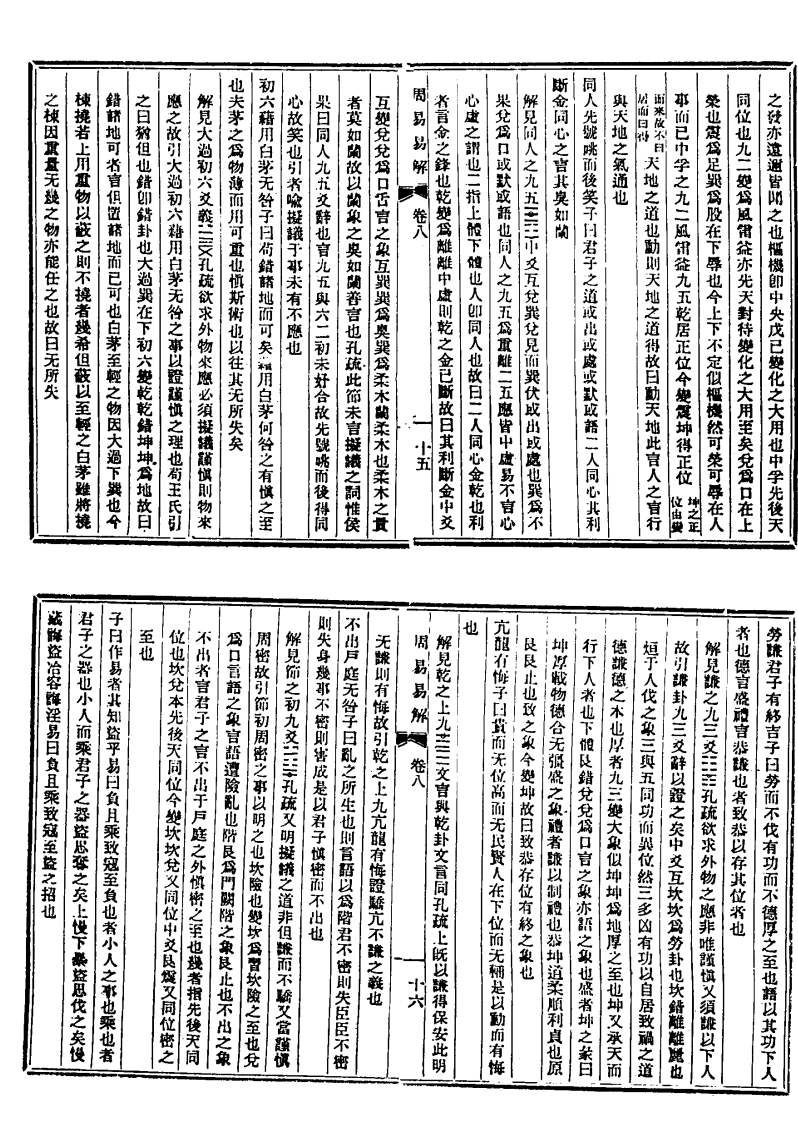 之發亦遠邇皆聞之也樞機卽中央戊己變化之大用也中孚先後天
同位也九二變爲風雷益亦先天對待變化之大用至矣兌爲口在上
榮也震爲足巽爲股在下辱也今上下不定似樞機然可榮可辱在人
事而已中孚之九二風雷益九五乾居正位今變震坤得正位坤之正位由變
而來故不曰居而曰得天地之道也動則天地之道得故曰動天地此言人之言行
與天地之氣通也
同人先號咷而後笑子曰君子之道或出或處或默或語二人同心其利
斷金同心之言其臭如蘭
解見同人之九五中爻互兌巽兌見而巽伏或出或處也巽爲不
果兌爲口或默或語也同人之九五爲重離二五應皆中虛易不言心
心虛之謂也二指上體下體也人卽同人也故曰二人同心金乾也利
者言金之鋒也乾變爲離離中虛則乾之金已斷故曰其利斷金中爻
周易易解 卷八 十五
互變兌兌爲口舌言之象互巽巽爲臭巽爲柔木蘭柔木也柔木之貴
者莫如蘭故以蘭象之臭如蘭善言也孔疏此節未言擬議之詞惟侯
果曰同人九五爻辭也言九五與六二初未好合故先號咷而後得同
心故笑也引者喩擬議于事未有不應也
初六藉用白茅无咎子曰苟錯諸地而可矣藉用白茅何咎之有慎之至
也夫茅之爲物薄而用可重也慎斯術也以往其无所失矣
解見大過初六爻義孔疏欲求外物來應必須擬議謹慎則物來
應之故引大過初六藉用白茅无咎之事以證謹慎之理也苟王氏引
之曰猶但也錯卽錯卦也大過巽在下初六變乾乾錯坤坤爲地故曰
錯諸地可者言但置諸地而已可也白茅至輕之物因大過下巽也今
棟撓若上用重物以蔽之則不撓者幾希但蔽以至輕之白茅雖將撓
之棟因重量无幾之物亦能任之也故曰无所失
勞謙君子有終吉子曰勞而不伐有功而不德厚之至也語以其功下人
者也德言盛禮言恭謙也者致恭以存其位者也
解見謙之九三爻孔疏欲求外物之應非唯謹慎又須謙以下人
故引謙卦九三爻辭以證之矣中爻互坎坎爲勞卦也坎錯離離麗也
烜于人伐之象三與五同功而異位然三多凶有功以自居致禍之道
德謙德之本也厚者九三變大象似坤坤爲地厚之至也坤又承天而
行下人者也下體艮錯兌兌爲口言之象亦語之象也盛者坤之彖曰
坤厚載物德合无疆盛之象禮者謙以制禮也恭坤道柔順利貞也原
艮艮止也致之象今變坤故曰致恭存位有終之象也
亢龍有悔子曰貴而无位高而无民賢人在下位而无輔是以動而有悔
也
解見乾之上九文言與乾卦文言同孔疏上既以謙得保安此明
周易易解 卷八 十六
无謙則有悔故引乾之上九亢龍有悔證驕亢不謙之義也
不出戶庭无咎子曰亂之所生也則言語以爲階君不密則失臣臣不密
則失身幾事不密則害成是以君子慎密而不出也
解見節之初九爻孔疏又明擬議之道非但謙而不驕又當謹慎
周密故引節初周密之事以明之也坎險也變坎爲習坎險之至也兌
爲口言語之象言語遭險亂也階艮爲門闕階之象艮止也不出之象
不出者言君子之言不出于戶庭之外慎密之至也幾者指先後天同
位也坎兌本先後天同位今變坎坎兌又同位中爻艮震又同位密之
至也
子曰作易者其知盜乎易曰負且乘致寇至負也者小人之事也乘也者
君子之器也小人而乘君子之器盜思奪之矣上慢下暴盜思伐之矣慢
藏誨盜冶容誨淫易曰負且乘致寇至盜之招也